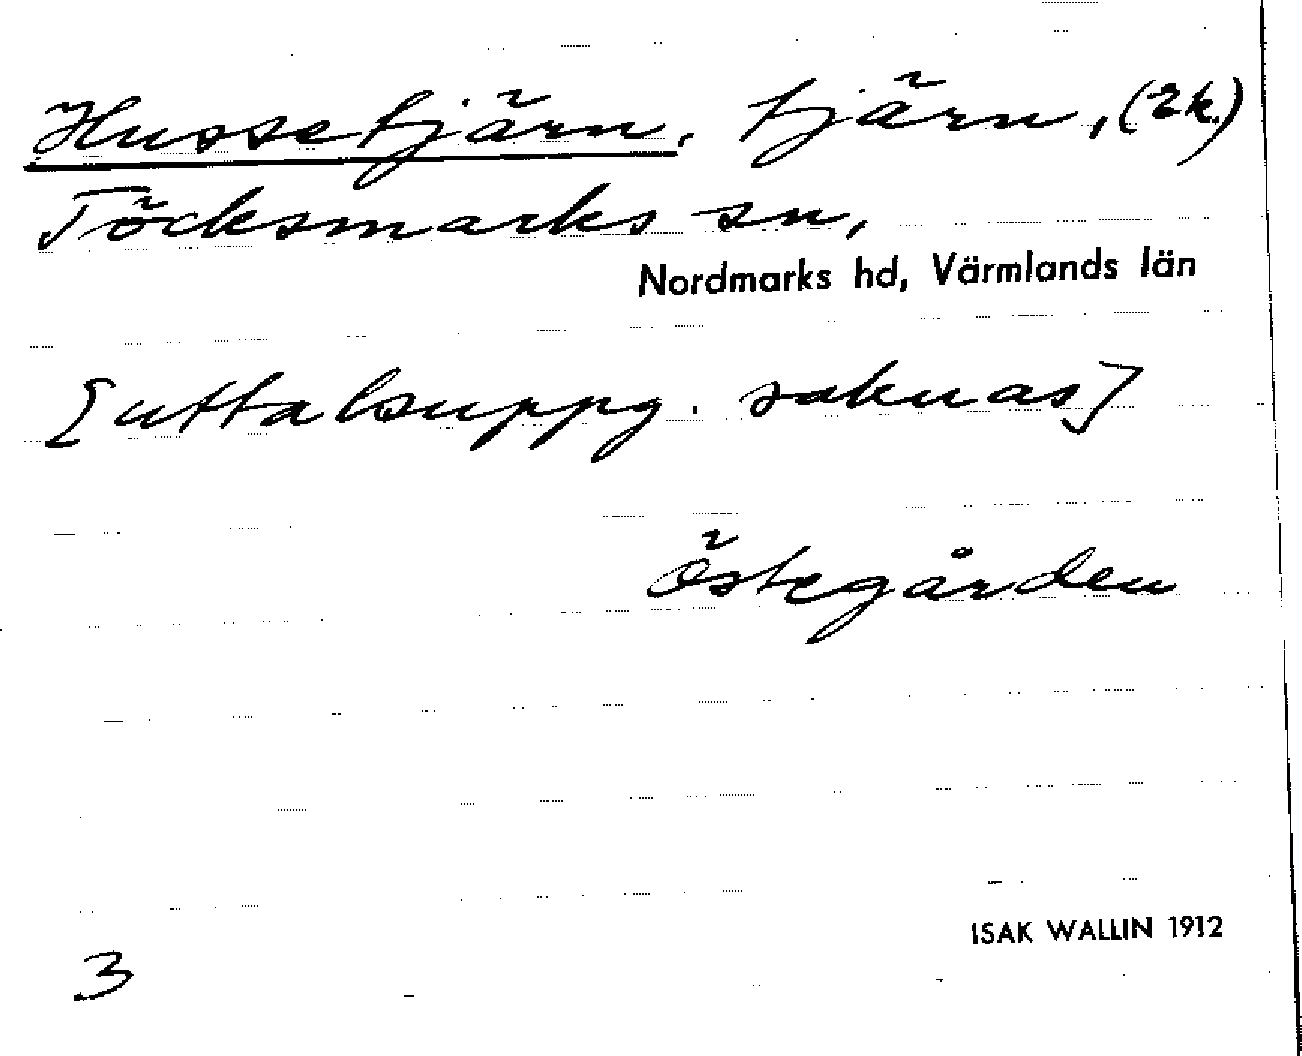 Hussetjärn, tjärn, (2k.)
Töcksmarks sn,
Nordmarks hd, Värmlands län
[uttalsuppg. saknas]
Östegården
ISAK WALLIN 1912
3